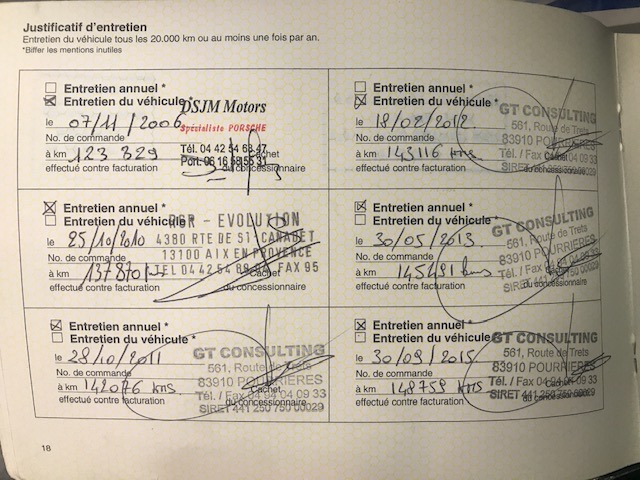 Justificatif d'entretien
Entretien du véhicule tous les 20.000 km ou au moins une fois par an.
*Biffer les mentions inutiles
Entretien annuel *
Entretien du véhicule *
le 07/11/2006
No. de commande
à km 123 829
effectué contre facturation
DSJM Motors
Spécialiste PORSCHE
Tél. 04 42 54 68 47
Port. 06 16 58 55 31
Cachet
Entretien annuel *
Entretien du véhicule *
le 25/10/2010
No. de commande
à km 137870
effectué contre facturation
RGR - EVOLUTION
4380 RTE DE ST-CANADET
13100 AIX EN PROVENCE
TEL 04 42 54 FAX 95
Cachet
du concessionnaire
Entretien annuel *
Entretien du véhicule *
le 28/10/2011
No. de commande
à km 142076 kms
effectué contre facturation
GT CONSULTING
561, Route de Trets
83910 POURRIERES
Tél. / Fax 04 94 04 09 33
SIRET 441 250 750 00029
Cachet
du concessionnaire
Entretien annuel *
Entretien du véhicule *
le 18/02/2012
No. de commande
à km 143116 kms
effectué contre facturation
GT CONSULTING
561, Route de Trets
83910 POURRIERES
Tél. / Fax 04 09 33
SIRET
Entretien annuel *
Entretien du véhicule *
le 30/05/2013
No. de commande
à km 145491 kms
effectué contre facturation
GT CONSULTING
561, Route de Trets
83910 POURRIERES
Tél. / Fax
SIRET
Entretien annuel *
Entretien du véhicule *
le 30/09/2015
No. de commande
à km 148759 kms
effectué contre facturation
GT CONSULTING
561, Route de Trets
83910 POURRIERES
Tél. / Fax 04 94 04 09 33
SIRET 441 250 750 00029
18